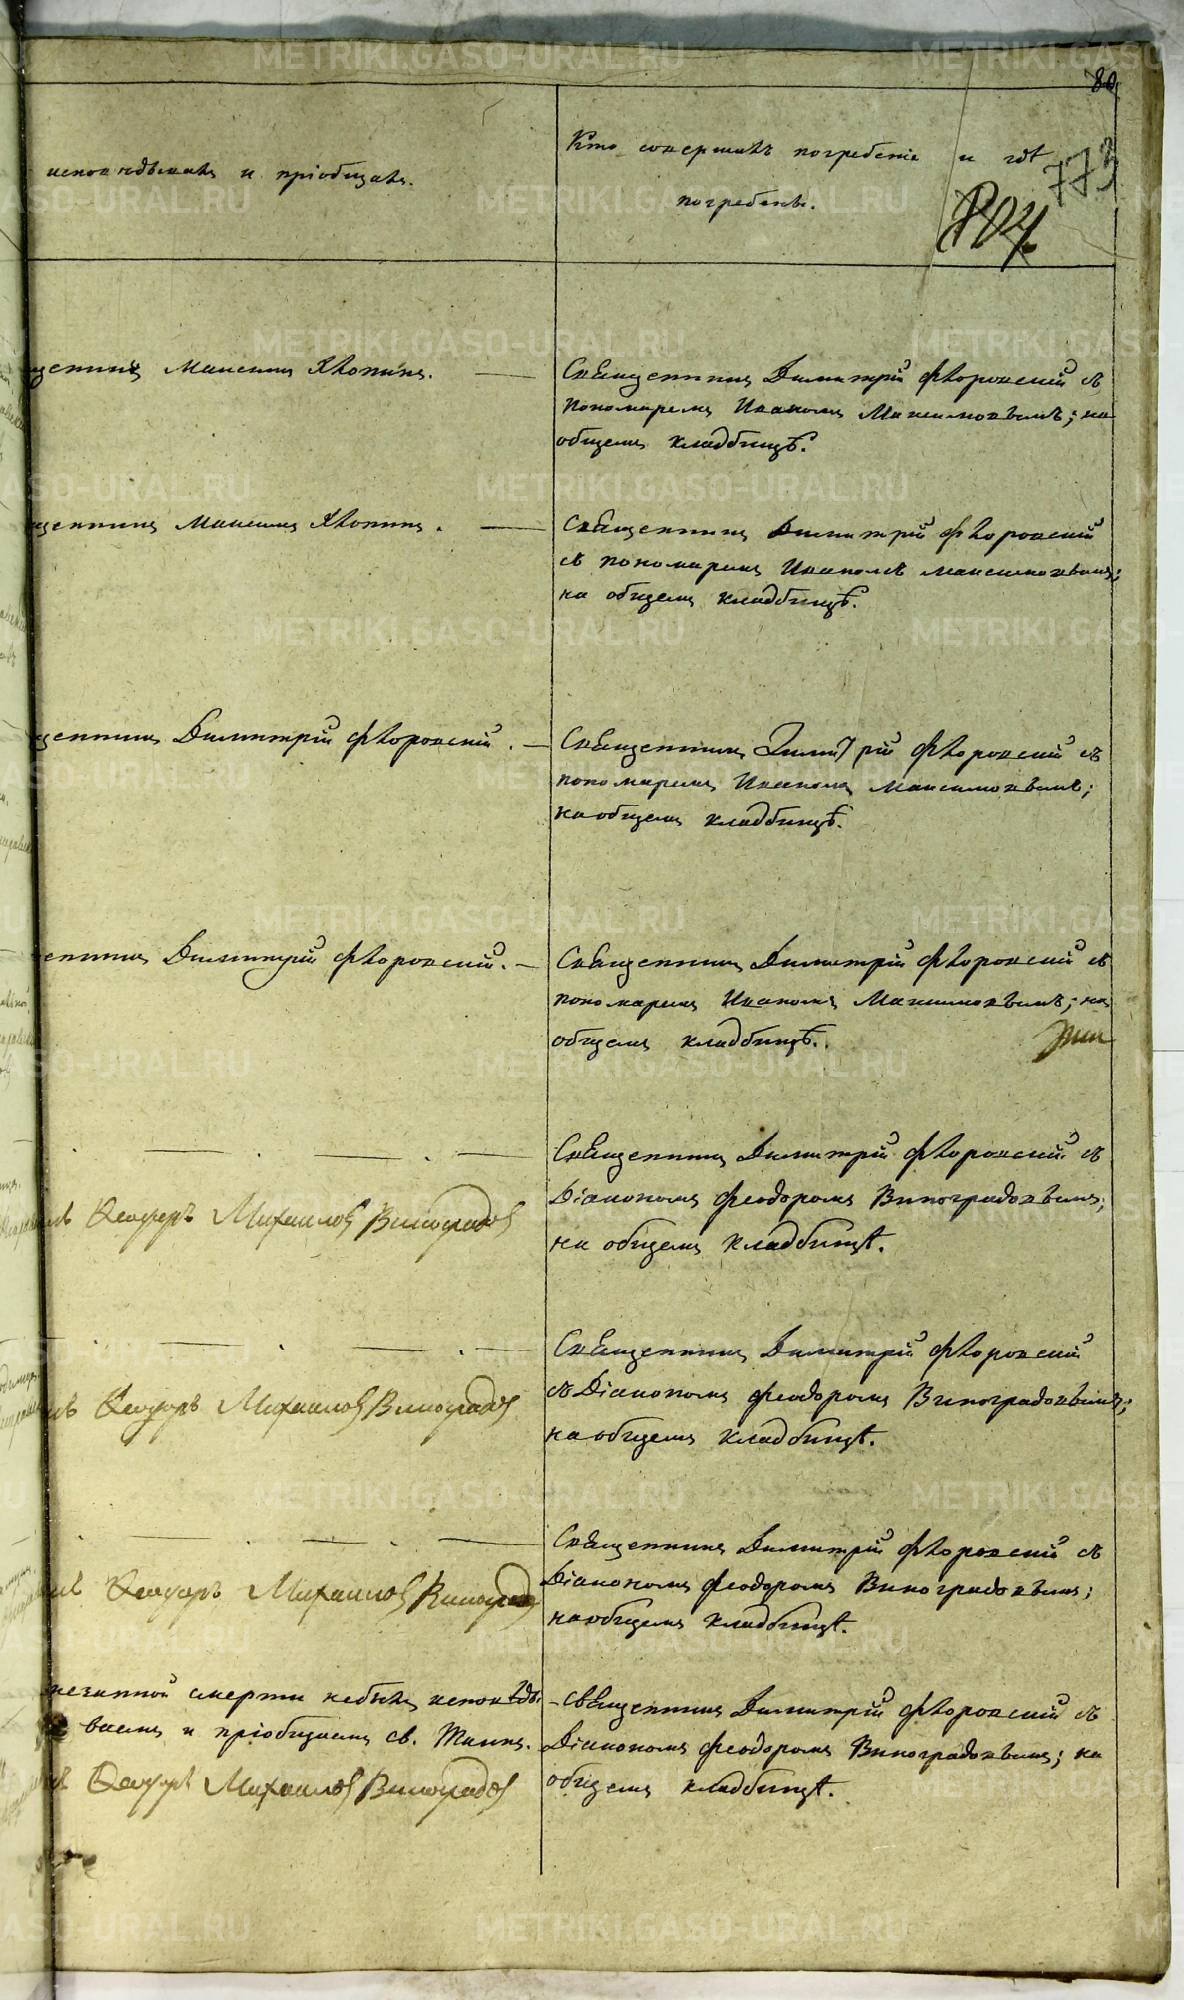 80
773
исповѣдывалъ и пріобщалъ.
Кто совершалъ погребеніе и гдѣ
погребены.
щенникъ Максимъ Хлопинъ.
Священникъ Димитрій Флоровскій съ
пономаремъ Иваномъ Максимовымъ; на
общемъ кладбищѣ.
щенникъ Максимъ Хлопинъ.
Священникъ Димитрій Флоровскій
съ пономаремъ Иваномъ Максимовымъ;
на общемъ кладбищѣ.
щенникъ Димитрій Флоровскій.
Священникъ Димитрій Флоровскій съ
пономаремъ Иваномъ Максимовымъ;
на общемъ кладбищѣ.
енникъ Димитрій Флоровскій.
Священникъ Димитрій Флоровскій съ
пономаремъ Иваномъ Максимовымъ; на
общемъ кладбищѣ.
Священникъ Димитрій Флоровскій съ
Діакономъ Феодоромъ Виноградовымъ;
на общемъ кладбищѣ.
Михаиловъ Виноградовъ
Священникъ Димитрій Флоровскій
съ Діакономъ Феодоромъ Виноградовымъ;
на общемъ кладбищѣ.
Михаиловъ Виноградовъ
Священникъ Димитрій Флоровскій съ
Діакономъ Феодоромъ Виноградовымъ;
на общемъ кладбищѣ.
Михаиловъ Виноградовъ
незапной смерти небылъ исповѣды-
ваемъ и пріобщаемъ св. Таинъ.
Михаиловъ Виноградовъ
Священникъ Димитрій Флоровскій съ
Діакономъ Феодоромъ Виноградовымъ; на
общемъ кладбищѣ.
METRIKI.GASO-URAL.RU